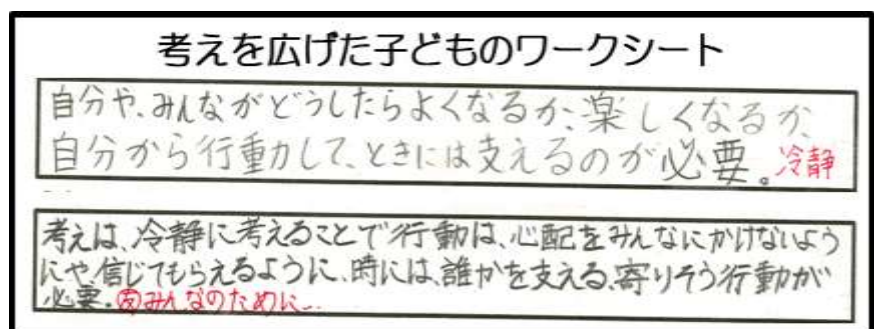 考えを広げた子どものワークシート
自分や、みんながどうしたらよくなるか、楽しくなるか、
自分から行動して、ときには支えるのが必要。冷静
考えは、冷静に考えることで行動は、心配をみんなにかけないよう
にや、信じてもらえるように、時には、誰かを支える、寄りそう行動が
必要。友みんなのために…